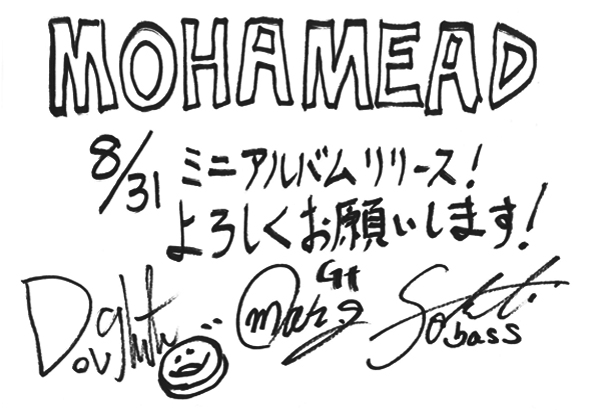 MOHAMEAD
8/31 ミニアルバムリリース!
よろしくお願いします!
Gt
bass